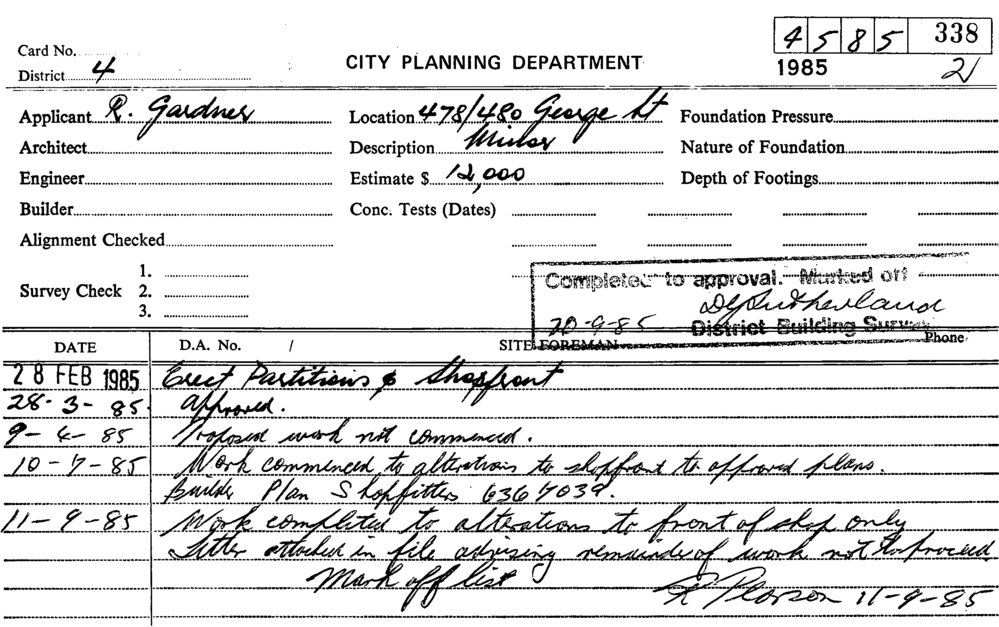 4585 338
Card No.
CITY PLANNING DEPARTMENT
1985 2
District 4
Applicant R. Gardner Location 478/480 George St Foundation Pressure
Architect Description Minor Nature of Foundation
Engineer Estimate $ 12,000 Depth of Footings
Builder Conc. Tests (Dates)
Alignment Checked
1.
Survey Check 2.
3.
Completed to approval. Marked off
20-9-85 District Building Surveyor
DATE D.A. No. / SITE FOREMAN Phone
28 FEB 1985 Erect Partitions & Shopfront
28-3-85 Approved.
9-4-85 Proposed work not commenced.
10-7-85 Work commenced to alterations to shopfront to approved plans.
Builder Plan Shopfitters 6367039.
11-9-85 Work completed to alterations to front of shop only
Letter attached in file advising remainder of work not to proceed
Mark off list
R Pearson 11-9-85